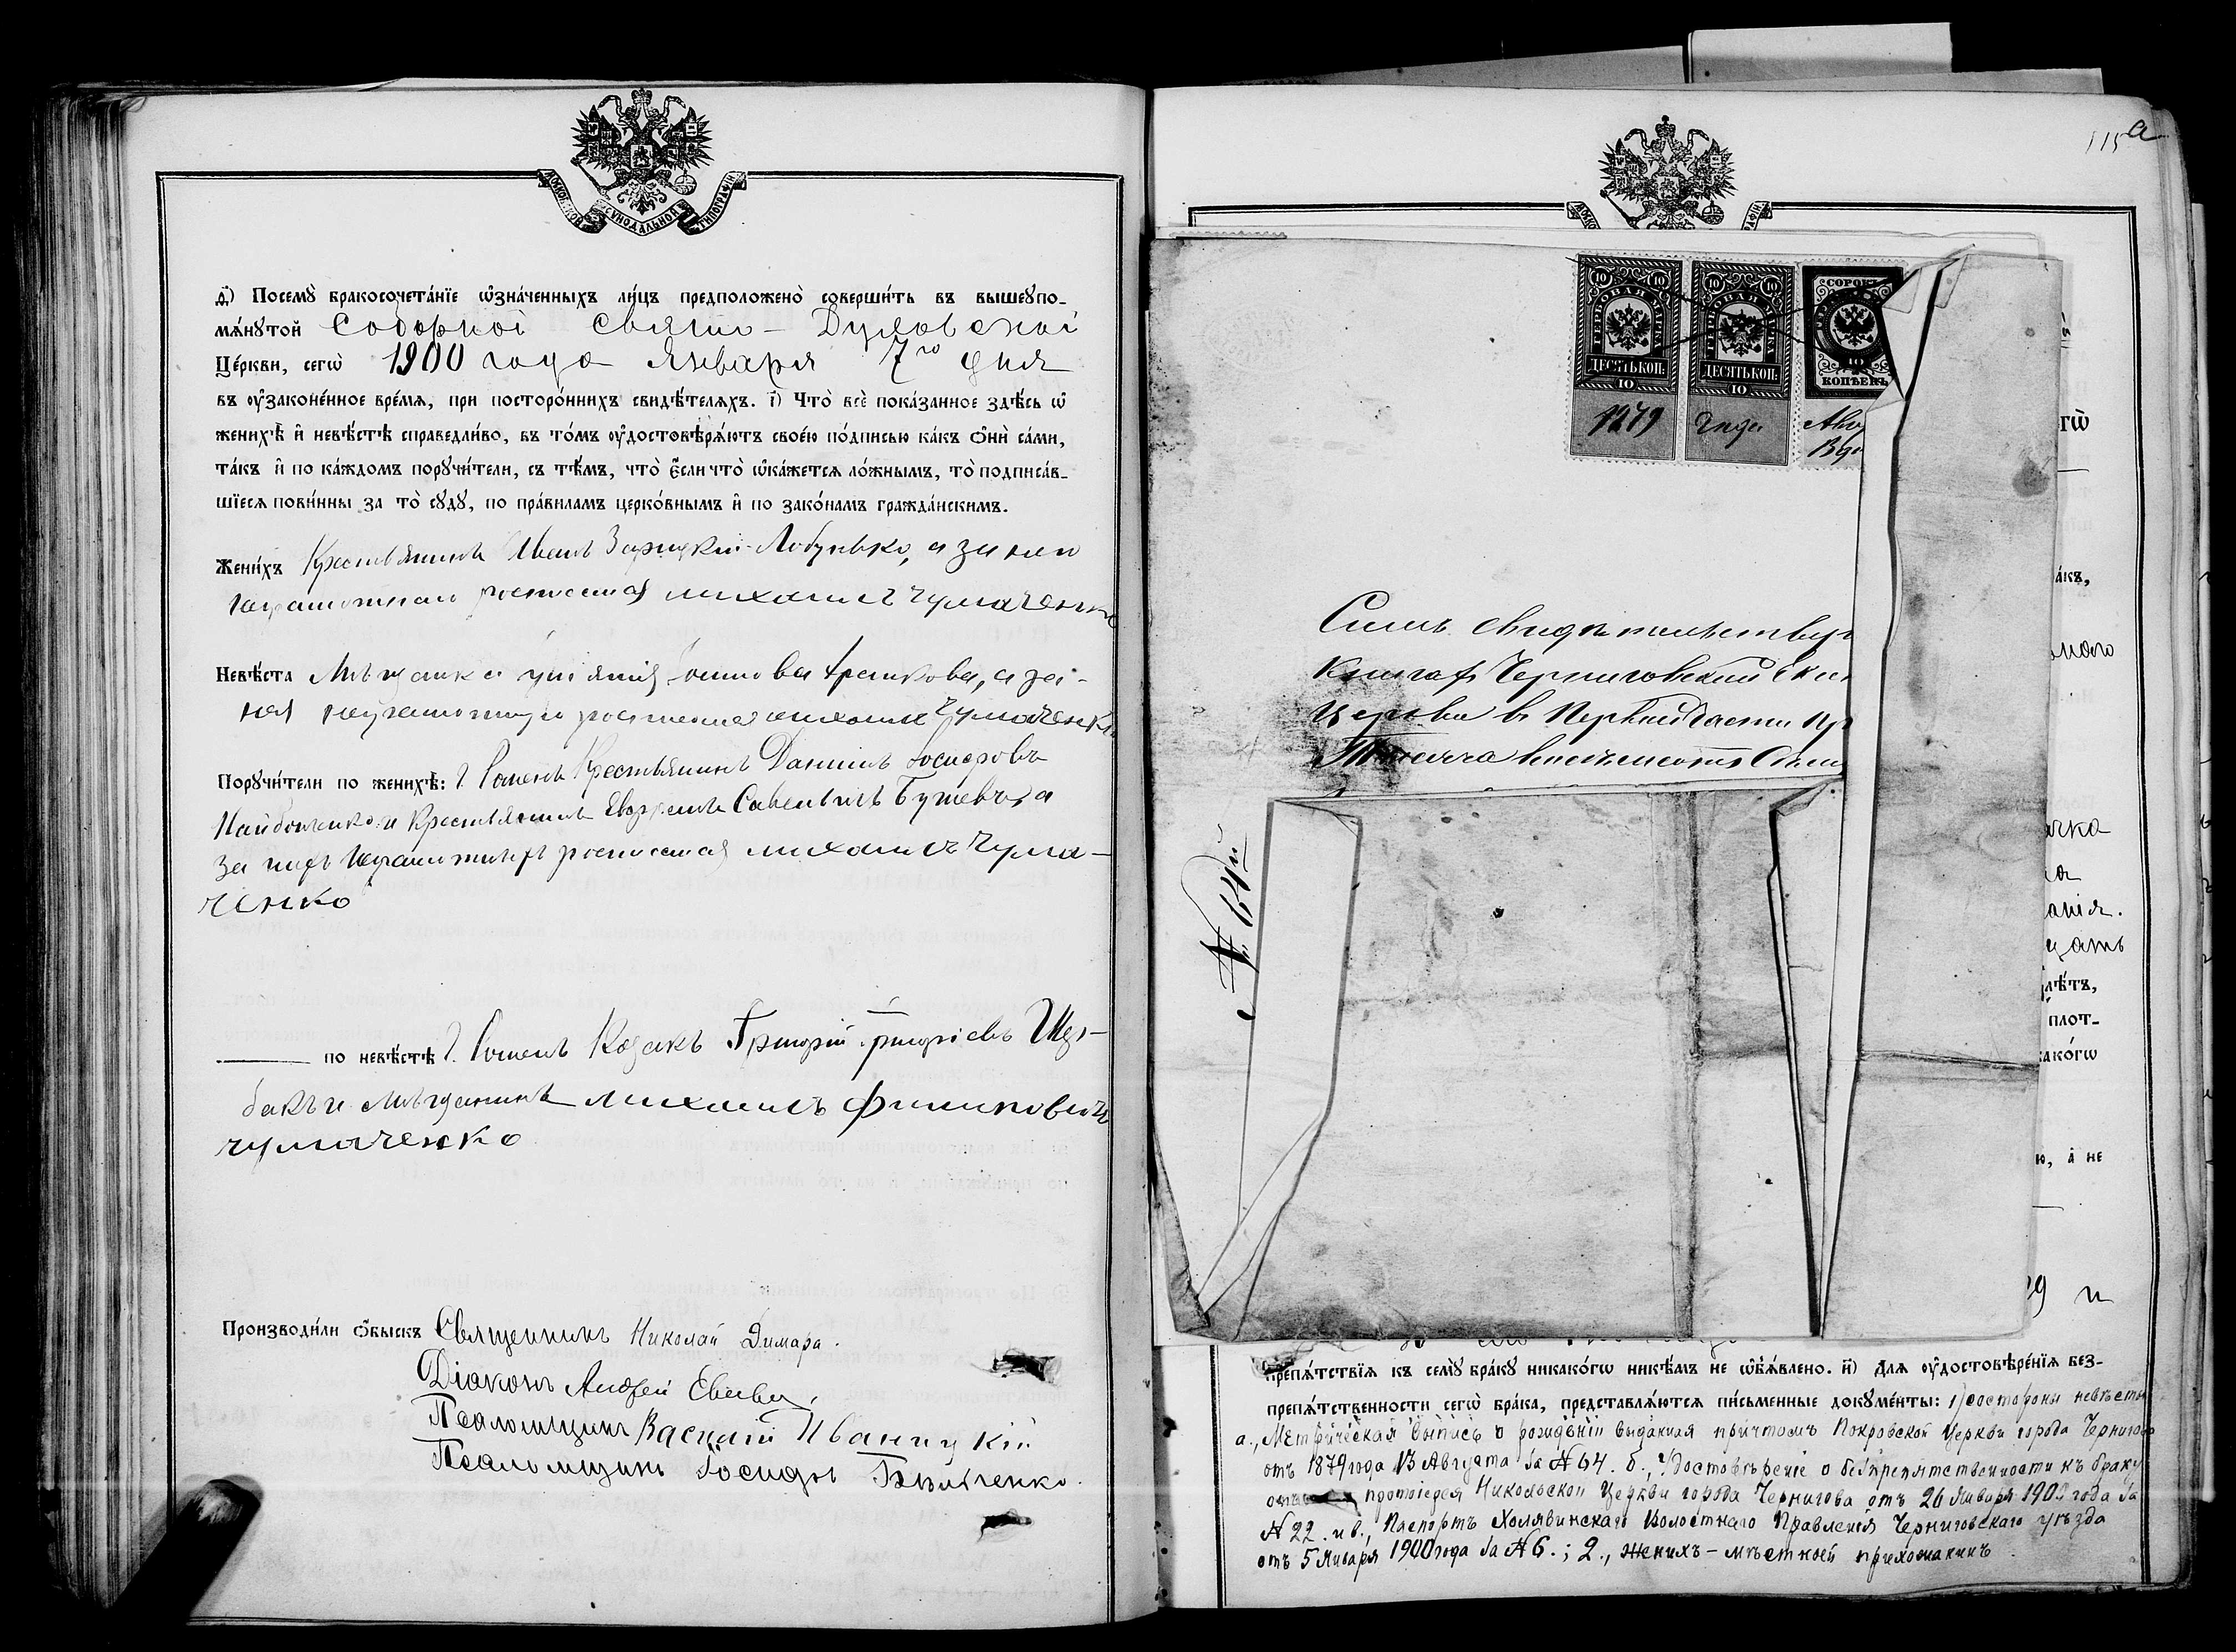 МОСКОВСКОЙ СѴНОДАЛЬНОЙ ТИПОГРАФІИ
д҃) Посемꙋ̀ бракосочета́нїе ѡ҆зна́ченныхъ ли́цъ предположено̀ соверши́ть въ вышеꙋпо-
мѧ́нꙋтой Соборной Свято-Духовской
Це́ркви, сегѡ̀ 1900 года Января 7го дня
въ ᲂу҆законе́нное вре́мѧ, при посторо́ннихъ свидѣ́телѧхъ. і҃) Что̀ всѐ пока́занное здѣ́сь ѡ҆
женихѣ̀ и҆ невѣ́стѣ справедли́во, въ то́мъ ᲂу҆достовѣрѧ́ютъ свое́ю по́дписью ка́къ ѻ҆нѝ са́ми,
та́къ и҆ по ка́ждомъ порꙋчи́тели, съ тѣ́мъ, что̀ є҆́сли что̀ ѡ҆ка́жетсѧ ло́жнымъ, то̀ подписа́в-
шїесѧ пови́нны за то̀ сꙋдꙋ̀, по пра́виламъ церко́внымъ и҆ по зако́намъ гражда́нскимъ.
Жени́хъ Крестьянинъ Иванъ Зарицкій-Лобунько, а за него
неграмотнаго росписался Михаилъ Чумаченко
Невѣ́ста Мѣщанка Франкова, а за-
нея неграмотную росписался Михаилъ Чумаченко
Порꙋчи́тели по женихѣ̀: Г. Роменъ Крестьянинъ Даниилъ Іосифовъ
и Крестьянинъ Савельевъ а
за нихъ неграмотныхъ росписался Михаилъ Чума-
ченко
по невѣ́стѣ Г. Роменъ Козакъ Григорій Григоріевъ
и Мѣщанинъ Михаилъ Филиповичъ
Чумаченко
Производи́ли ѻ҆́быскъ Священникъ Николай Димара.
Діаконъ Андрей
Псаломщикъ Василій Иваницкій
Псаломщикъ Іосифъ Бѣльченко.
115а
10 10
ГЕРБОВАЯ МАРКА
ДЕСЯТЬ КОП:
10
1879
10 10
ГЕРБОВАЯ МАРКА
ДЕСЯТЬ КОП:
10
года
СОРОКЪ
КОПѢЕКЪ
Симъ свидѣтельству
книгахъ Черниговской
Церкви въ Первой части
Тысяча восемьсотъ
№ 64й
гѡ̀
а́къ,
анія.
лѣ́тъ,
плот-
како́гѡ
ю, а҆ не
29 и
препѧ́тствїѧ къ семꙋ̀ бра́кꙋ никако́гѡ никѣ́мъ не ѡ҆б̾ѧ́влено. и҃) Длѧ ᲂу҆достовѣре́нїѧ без-
препѧ́тственности сегѡ̀ бра́ка, представлѧ́ютсѧ пи́сьменные докꙋме́нты: 1) со стороны невѣсты
а., Метрическая выпись о рожденіи выданная причтомъ Покровской Церкви города Чернигова
отъ 1879 года 13 Августа за №64. б., Удостовѣреніе о безпрепятственности къ браку
отъ протоіерея Никольской Церкви города Чернигова отъ 26 Января 1900 года за
№22. и в., Паспортъ Холявинскаго Волостнаго Правленія Черниговскаго уѣзда
отъ 5 Января 1900 года за №6.; 2., Женихъ – мѣстной прихожанинъ